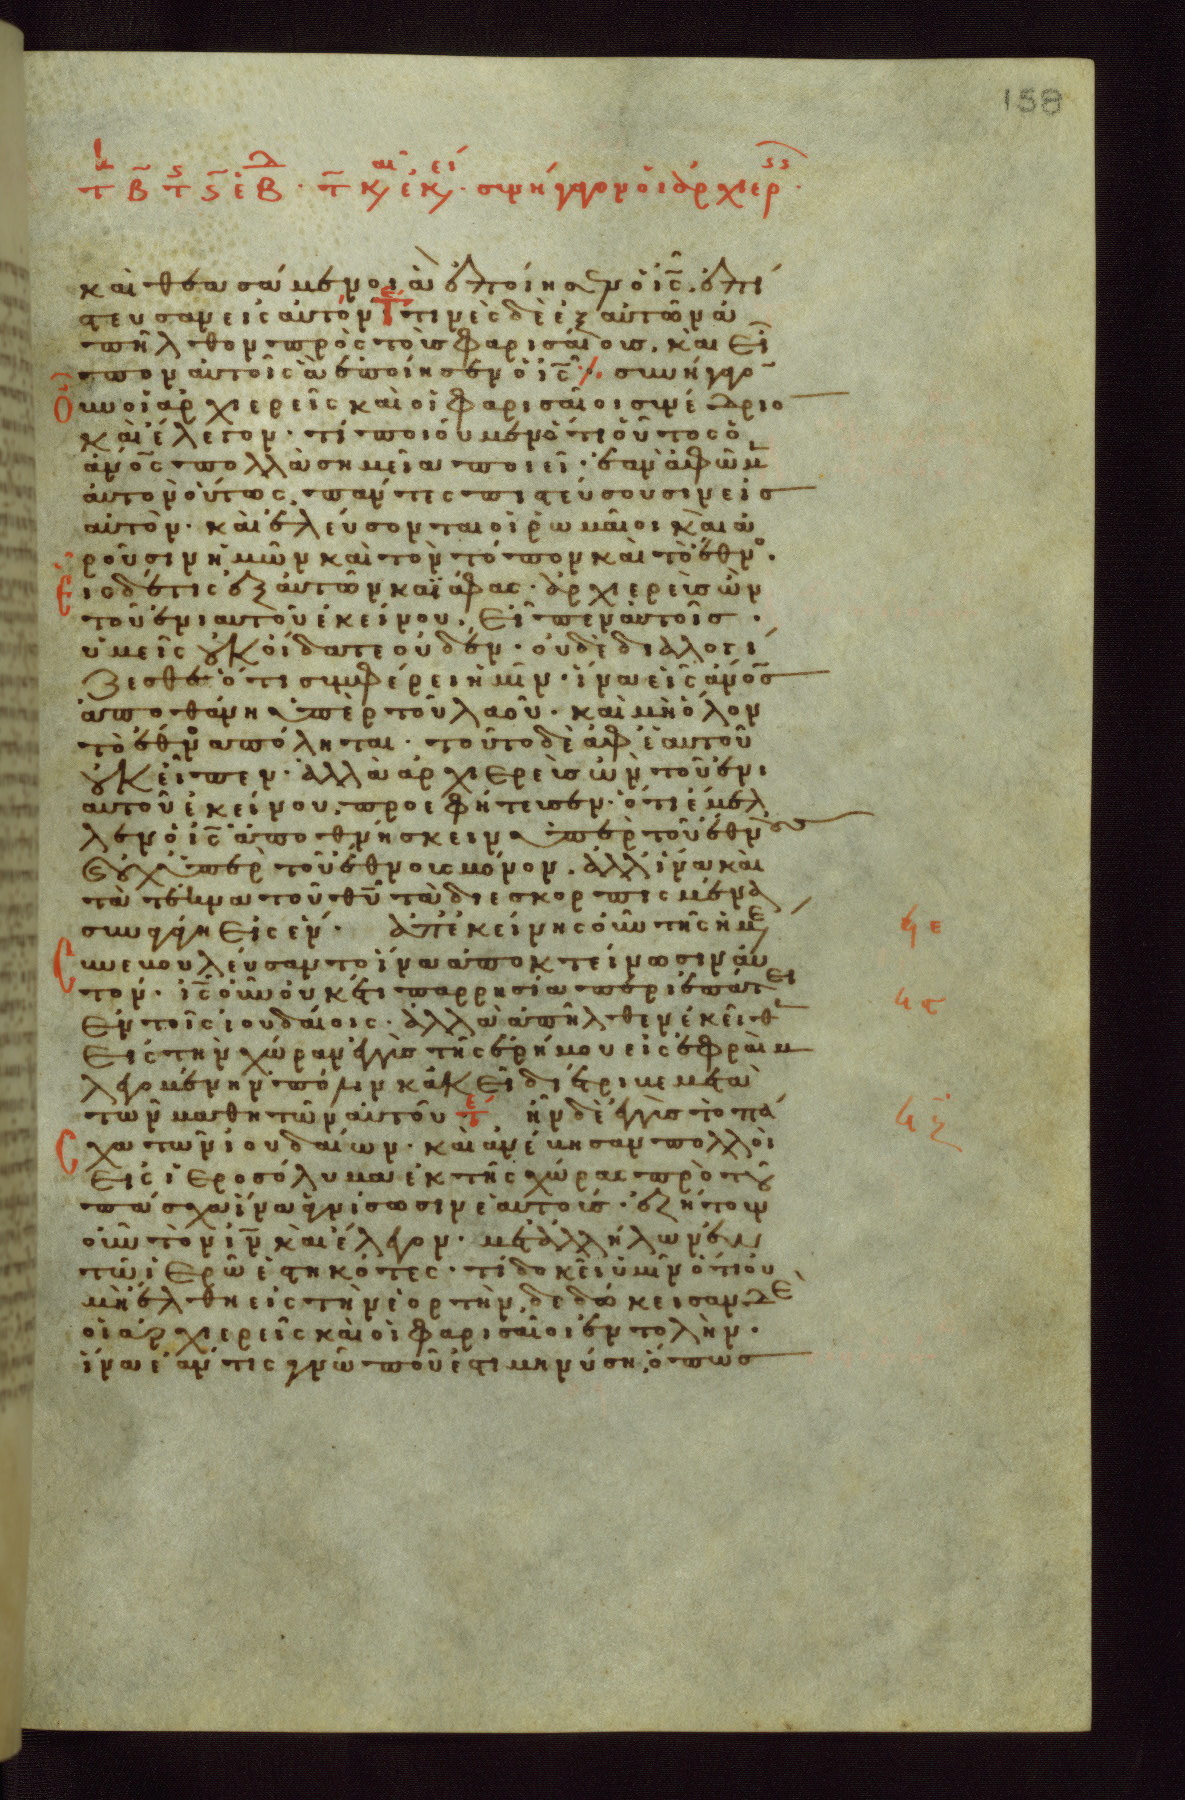 158
τῷ καιρῷ ἐκείνω. συνήγαγον οἱ ἀρχιερ
καὶ θεασάμενοι ἃ ἐποίησεν ὁ ι̅ς̅. ἐπί
στευσαν εἰς αὐτόν τινὲς δὲ ἐξ αὐτῶν ἀ
πῆλθον πρὸς τοὺς φαρισαίους. καὶ εἶ
πον αὐτοῖς ἃ ἐποίησεν ὁ ι̅ς̅. συνήγαγο̅
ουν οἱ ἀρχιερεῖς καὶ οἱ φαρισαῖοι συνέδριο
καὶ ἔλεγον. τί ποιοῦμεν ὅτι οὗτος ὁ
α̅ν̅ο̅ς̅ πολλὰ σημεῖα ποιεῖ. ἐὰν ἀφῶμ
αὐτὸν οὕτως. πάντες πιστεύσουσιν εἰς
αὐτόν. καὶ ἐλεύσονται οἱ ῥωμαῖοι καὶ ἀ
ροῦσιν ἡμῶν καὶ τὸν τόπον καὶ τὸ ἔθνο.
Εἷς δέ τις ἐξ αὐτῶν καϊάφας. ἀρχιερεὺς ὢν
τοῦ ἐνιαυτοῦ ἐκείνου. εἶπεν αὐτοῖς.
ὑμεῖς οὐκ οἴδατε οὐδέν. οὐδὲ διαλογί
ζεσθε ὅτι συμφέρει ἡμῖν. ἵνα εἷς α̅ν̅ο̅ς̅
ἀποθάνη ὑπὲρ τοῦ λαοῦ. καὶ μὴ ὅλον
τὸ ἔθνος ἀπόληται. τοῦτο δὲ ἀφ ἑαυτοῦ
οὐκ εἶπεν. ἀλλὰ ἀρχιερεὺς ὢν τοῦ ἐνι
αυτοῦ ἐκείνου. προεφήτευσεν. ὅτι ἔμελ
λεν ὁ ι̅ς̅ ἀποθνήσκειν ὑπὲρ τοῦ ἔθνους
Οὐχ ὑπὲρ τοῦ ἔθνους μόνον. ἀλλ ἵνα καὶ
τὰ τέκνα τοῦ θ̅υ̅ τὰ διεσκορπισμένα
συναγάγη εἰς ἕν. ἀπ ἐκείνης οὖν τῆς ἡμε
Συνεβουλεύσαντο ἵνα ἀποκτείνωσιν αὐ
τόν. ι̅ς̅ οὖν οὐκέτι παρρησία περιεπάτει
ἐν τοῖς ἰουδαίοις. ἀλλὰ ἀπῆλθεν ἐκεῖθ
εἰς τὴν χώραν ἐγγὺς τῆς ἐρήμου εἰς ἐφραὶμ
λεγομένην πόλιν κἀκεῖ διέτριβε μετὰ
τῶν μαθητῶν αὐτοῦ ἦν δὲ ἐγγὺς τὸ πά
Σχα τῶν ἰουδαίων. καὶ ἀνέβησαν πολλοὶ
εἰς ἱεροσόλυμα ἐκ τῆς χώρας πρὸ τοῦ
πάσχα ἵνα ἁγνίσωσιν ἑαυτούς. ἐζήτουν
οὖν τὸν ι̅ν̅ καὶ ἔλεγον. μετ ἀλλήλων ἐν
τῶ ἱερῶ ἑστηκότες. τί δοκεῖ ὑμῖν ὅτι οὐ
μὴ ἔλθη εἰς τὴν ἑορτήν. δεδώκεισαν δὲ
οἱ ἀρχιερεῖς καὶ οἱ φαρισαῖοι ἐντολήν.
ἵνα ἐάν τις γνῶ ποῦ ἐστι μηνύση, ὅπως